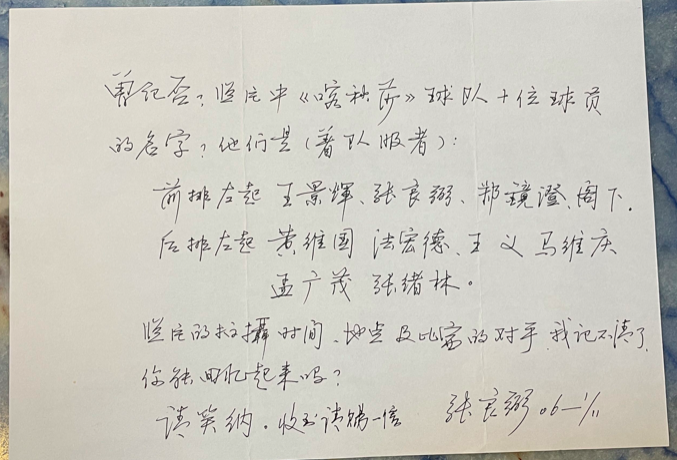 曾记否？照片中《喀秋莎》球队十位球员
的名字？他们是（着队服者）：
前排左起 王景辉、张良弼、郑镜澄、阁下．
后排左起 黄维国 法宏德、王义 马维庆
孟广茂 张绪林。
照片的拍摄时间、地点及比赛的对手，我记不清了，
你能回忆起来吗？
请笑纳．收到请赐一信 张良弼 06—1/11